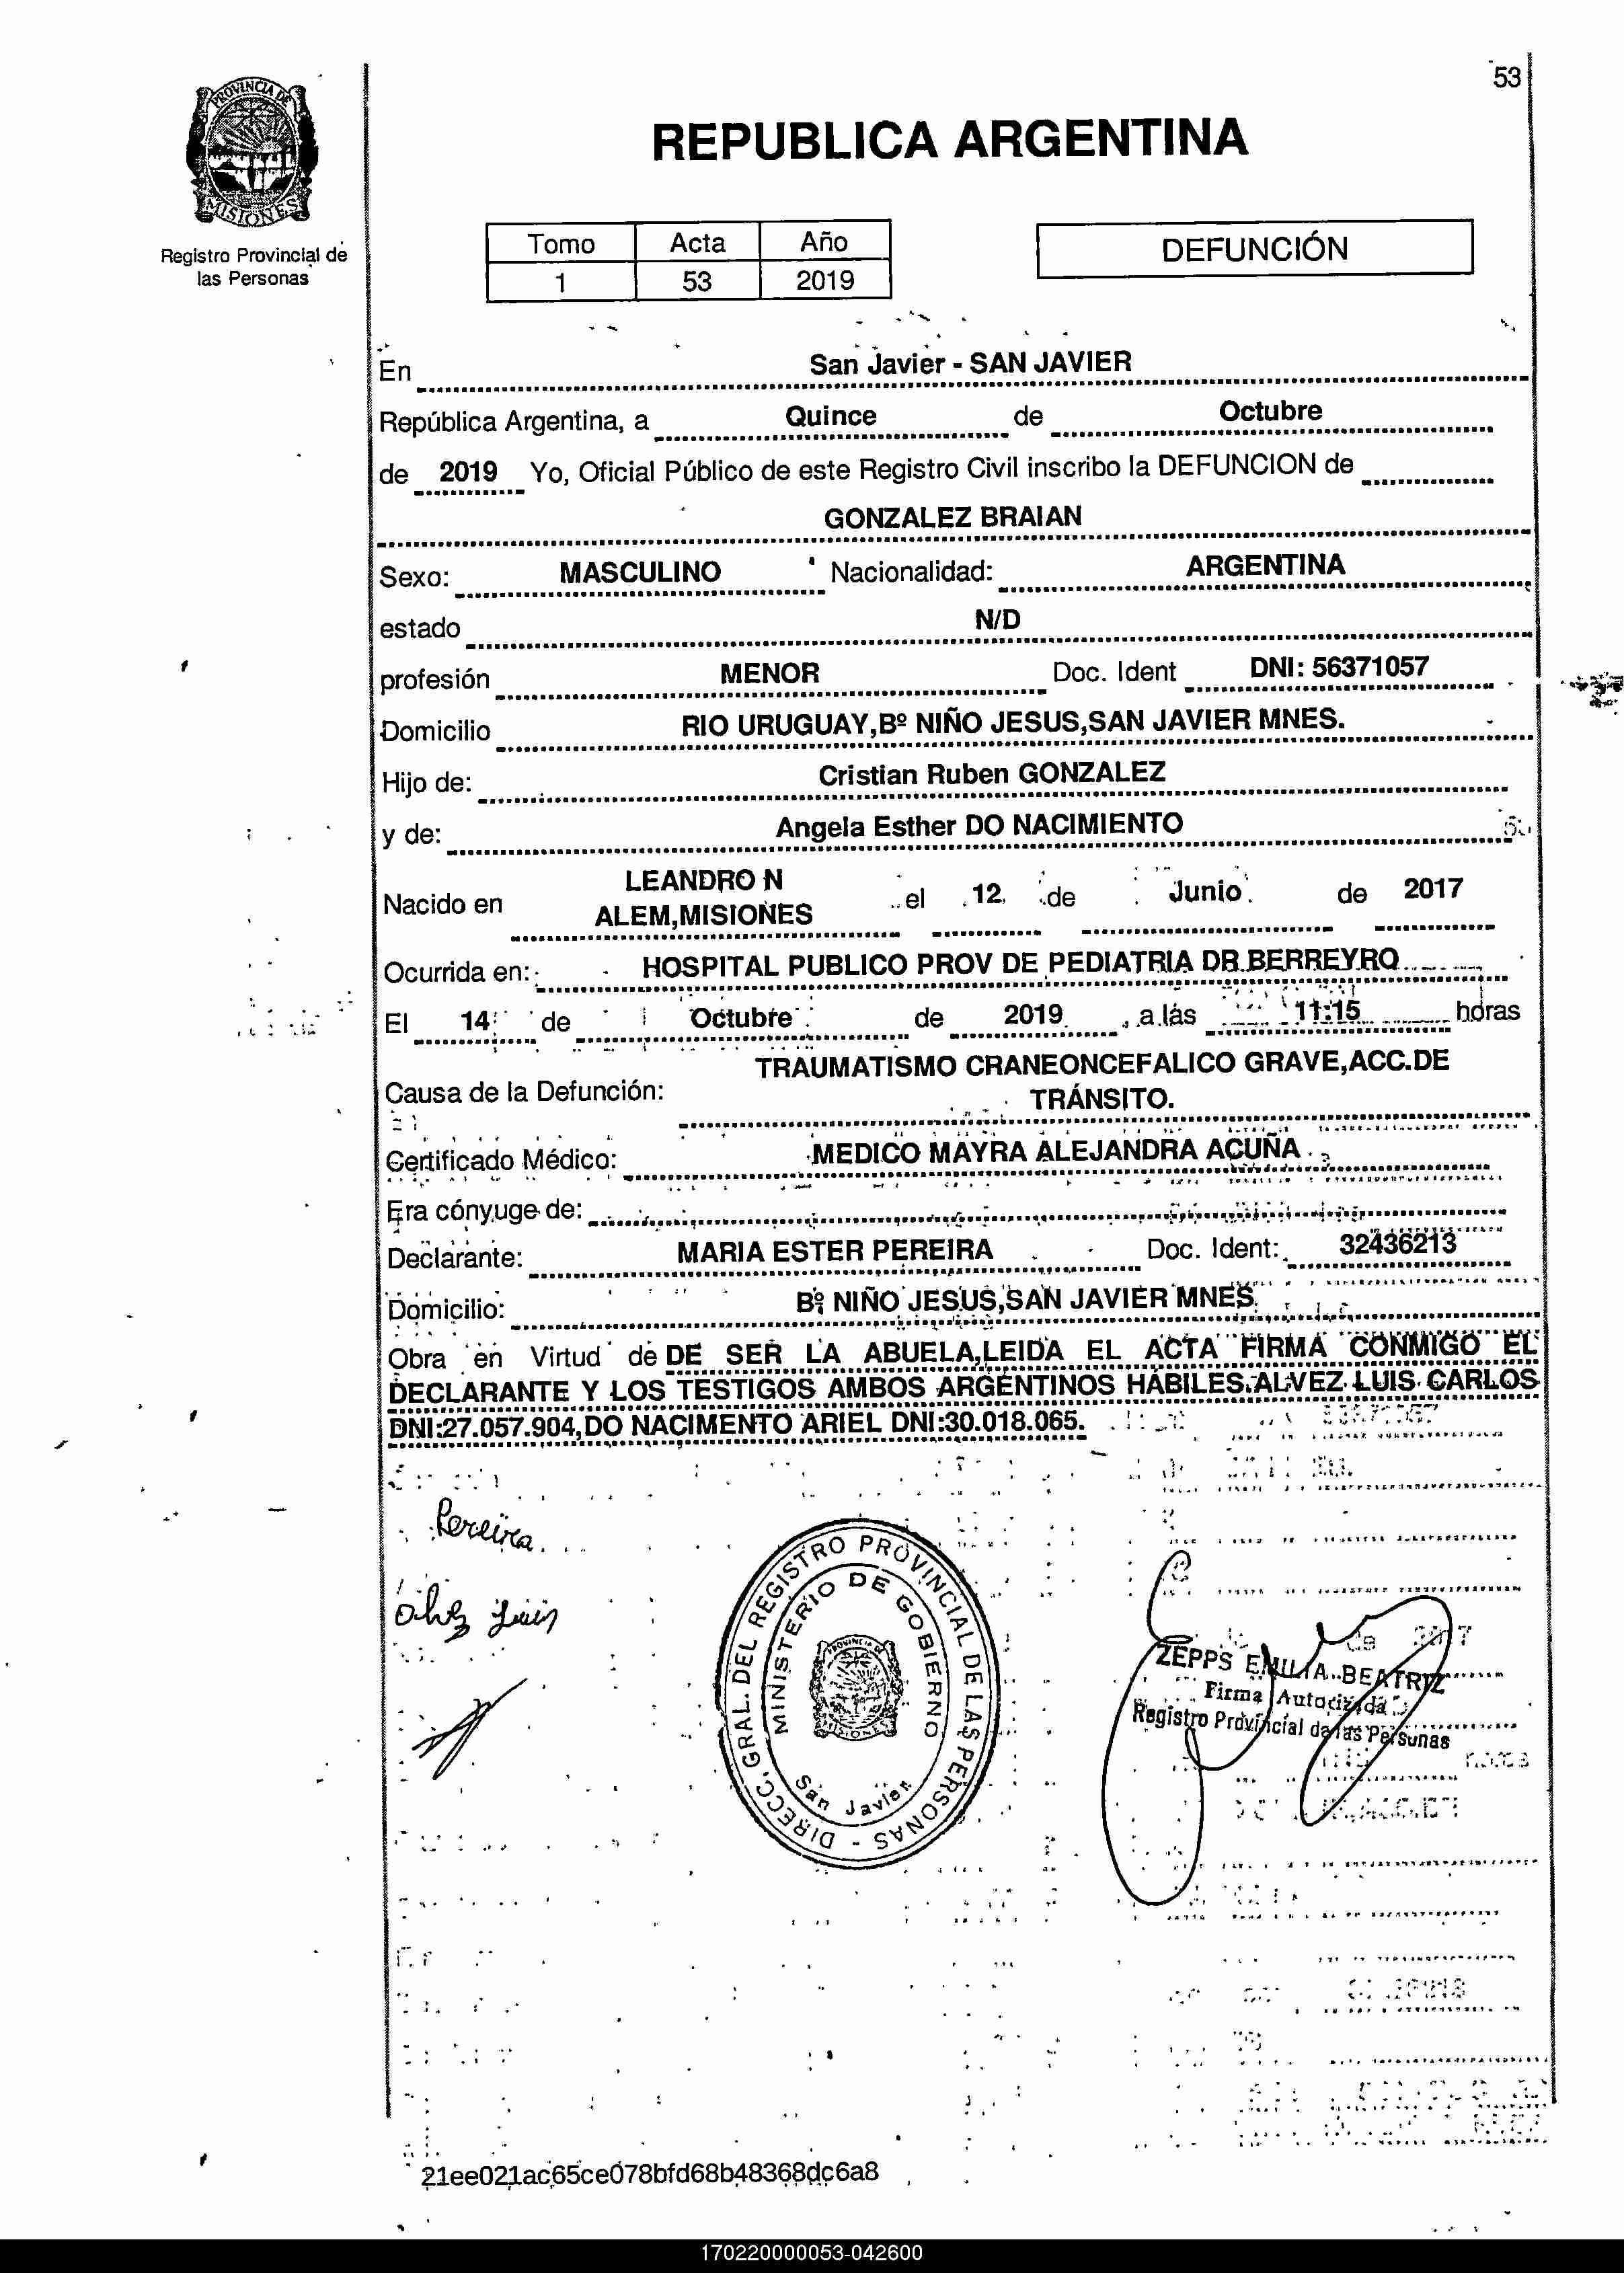 53
REPUBLICA ARGENTINA
PROVINCIA DE
MISIONES
Registro Provincial de
las Personas
Tomo Acta Año
1 53 2019
DEFUNCIÓN
En San Javier - SAN JAVIER
República Argentina, a Quince de Octubre
de 2019 Yo, Oficial Público de este Registro Civil inscribo la DEFUNCION de
GONZALEZ BRAIAN
Sexo: MASCULINO Nacionalidad: ARGENTINA
estado N/D
profesión MENOR Doc. Ident DNI: 56371057
Domicilio RIO URUGUAY,Bº NIÑO JESUS,SAN JAVIER MNES.
Hijo de: Cristian Ruben GONZALEZ
y de: Angela Esther DO NACIMIENTO
LEANDRO N
Nacido en ALEM,MISIONES el 12 de Junio de 2017
Ocurrida en: HOSPITAL PUBLICO PROV DE PEDIATRIA DR.BERREYRO
El 14 de Octubre de 2019, a las 11:15 horas
TRAUMATISMO CRANEONCEFALICO GRAVE,ACC.DE
Causa de la Defunción: TRÁNSITO.
Certificado Médico: MEDICO MAYRA ALEJANDRA ACUÑA
Era cónyuge de:
Declarante: MARIA ESTER PEREIRA Doc. Ident: 32436213
Domicilio: Bº NIÑO JESUS,SAN JAVIER MNES
Obra en Virtud de DE SER LA ABUELA,LEIDA EL ACTA FIRMA CONMIGO EL
DECLARANTE Y LOS TESTIGOS AMBOS ARGENTINOS HÁBILES.ALVEZ LUIS CARLOS
DNI:27.057.904,DO NACIMENTO ARIEL DNI:30.018.065.
Pereira
DIRECC. GRAL. DEL REGISTRO PROVINCIAL DE LAS PERSONAS -
MINISTERIO DE GOBIERNO
PROVINCIA DE
MISIONES
San Javier
ZEPPS EMILIA BEATRIZ
Firma Autorizada
Registro Provincial de las Personas
21ee021ac65ce078bfd68b48368dc6a8
170220000053-042600